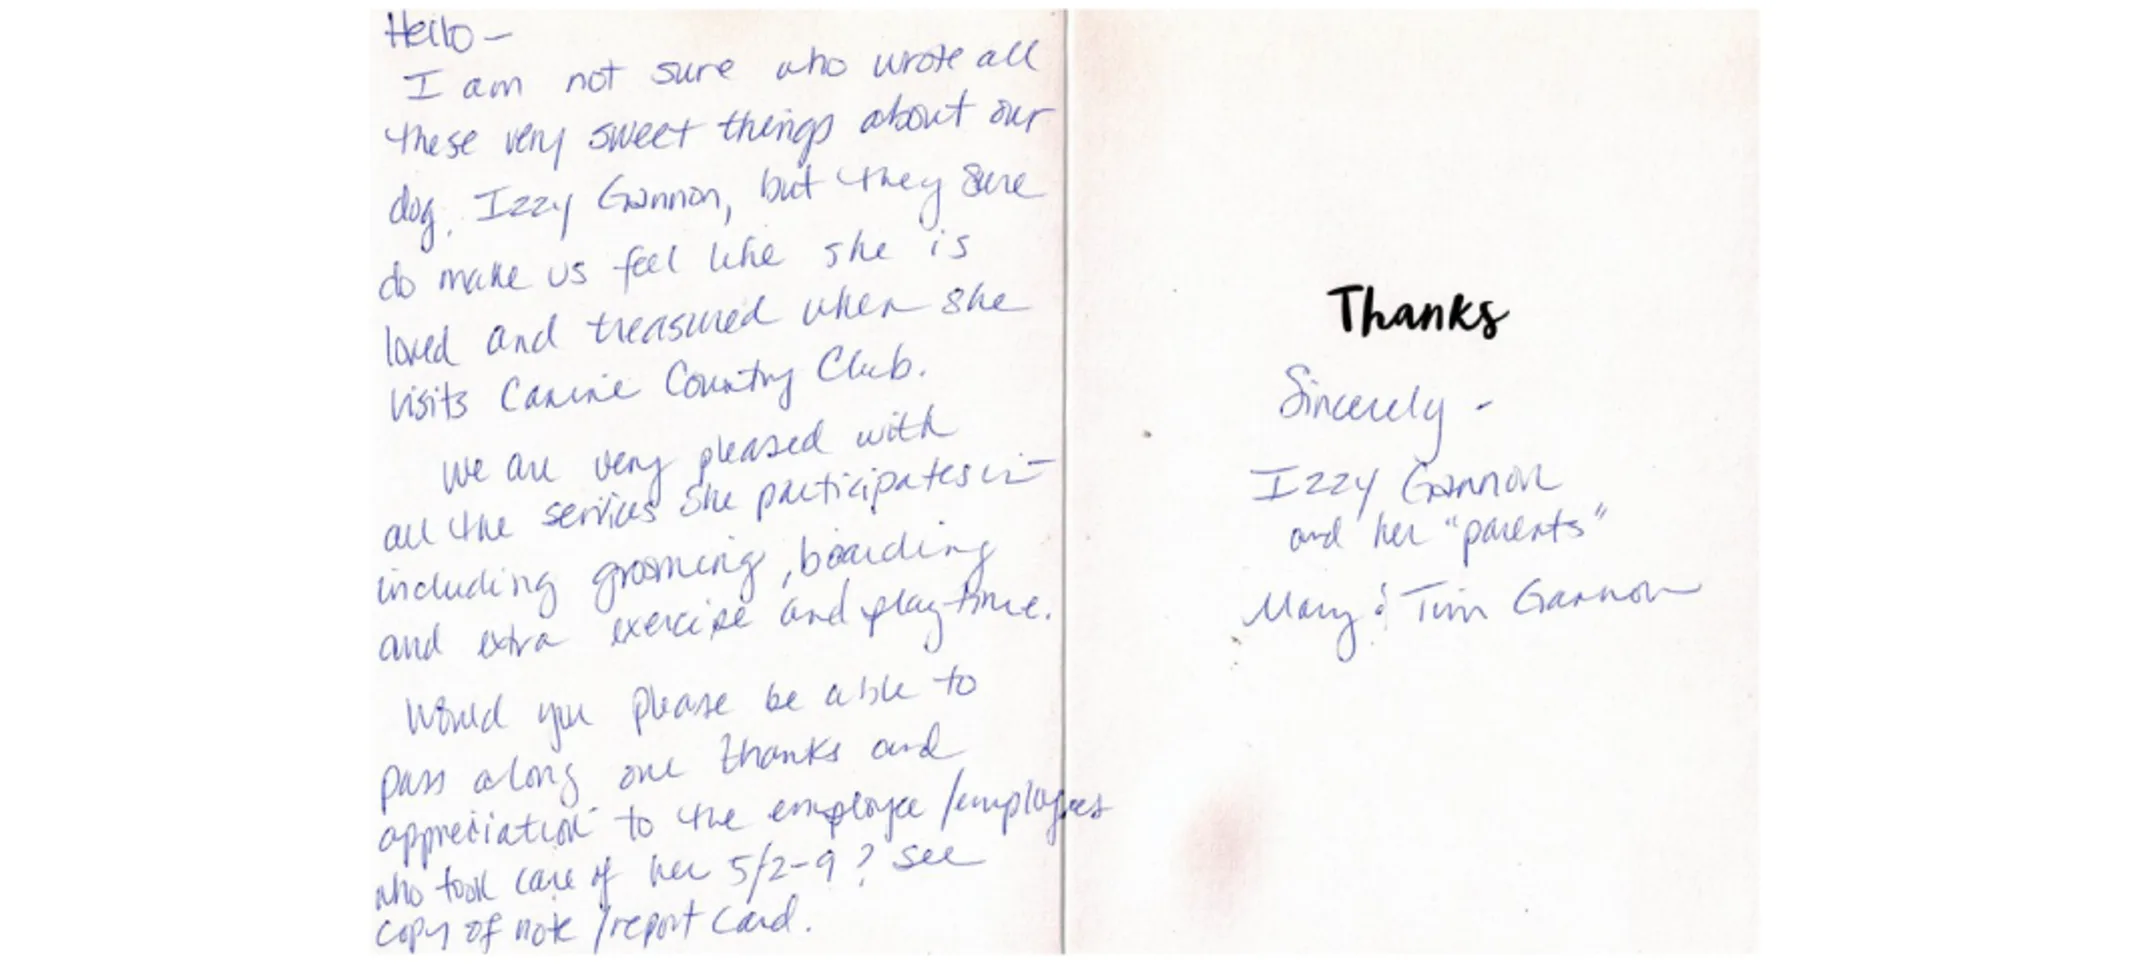 Hello -
I am not sure who wrote all
these very sweet things about our
dog, Izzy Gannon, but they sure
do make us feel like she is
loved and treasured when she
visits Canine Country Club.
We are very pleased with
all the services she participates in
including grooming, boarding
and extra exercise and play time.
Would you please be able to
pass along our thanks and
appreciation to the employee/employees
who took care of her 5/2-9? See
copy of note/report card.
Thanks
Sincerely -
Izzy Gannon
and her "parents"
Mary & Tim Gannon